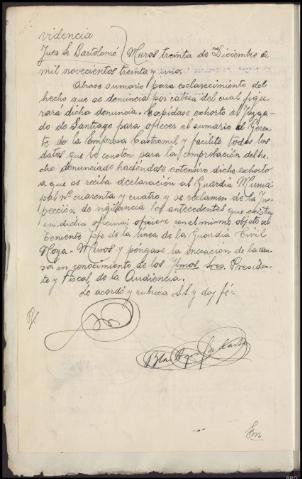 videncia
Juez Sr Bartolomé / Muros treinta de Diciembre de
mil novecientos treinta y uno.
Abrase sumario para esclarecimiento del
hecho que se denuncia por cabeza del cual figu-
rará dicha denuncia. Expídase exhorto al Juzga-
do de Santiago para ofrecer el sumario al Gerente
de la Empresa Castromil y facilite todos los
datos que le consten para la comprobación del he-
cho denunciado haciéndose extensivo dicho exhorto
a que se reciba declaración al Guardia Munici-
pal nº cuarenta y cuatro y se reclamen de la Ins-
pección de vigilancia los antecedentes que
en dicha oficina, ofíciese con el mismo objeto al
Teniente Jefe de la línea de la Guardia Civil
Noya-Muros y póngase la incoación de la cau-
sa en conocimiento de los Ilmos Sres. Presiden-
te y Fiscal de la Audiencia.
Lo acordó y rubrica S.S. y doy fé.